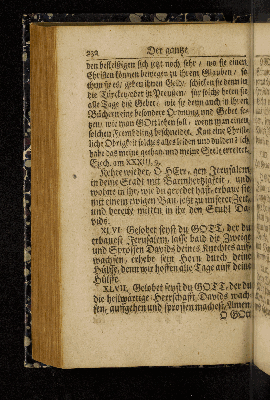 232 Der gantze
den befleissigen sich jetzt noch sehr / wo sie einen
Christen können bewegen zu ihrem Glauben / so
thun sie es / geben ihnen Geld / schicken sie denn in
die Türckey oder in Preussen / für solche beten sie
alle Tage die Gebet / wie sie denn auch in ihren
Büchern eine besondere Ordnung und Gebet se-
tzen / wie man GOtt loben soll / wenn man einen
solchen Frembdling beschneidet. Kan eine Christ-
liche Obrigkeit solches alles leiden und dulden? ich
habe das meine gethan und meine Seele errettet.
Ezech. am XXXIII, 9.
Kehre wieder, O HErr, gen Jerusalem
in deine Stadt mit Barmhertzigkeit, und
wohne in ihr, wie du geredet hast, erbaue sie
mit einem ewigen Bau, jetzt zu unserer Zeit,
und bereite mitten in ihr den Stuhl Da-
vids.
XLVI. Gelobet seyst du GOTT, der du
erbauest Jerusalem, lasse bald die Zweige
und Sprossen Davids deines Knechtes auf-
wachsen, erhebe sein Horn durch deine
Hülffe, denn wir hoffen alle Tage auff deine
Hülffe.
XLVII. Gelobet seyst du GOTT, der du
die heilwärtige Herrschafft Davids wach-
sen, auffgehen und sprossen machest, Amen.
O GOtt